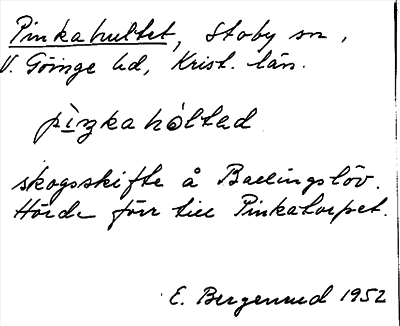 Pinkahultet, Stoby sn,
V. Göinge hd, Krist. län.
pìŋkahòltad
skogsskifte å Ballingslöv.
Hörde förr till Pinkatorpet.
E. Bergenrud 1952